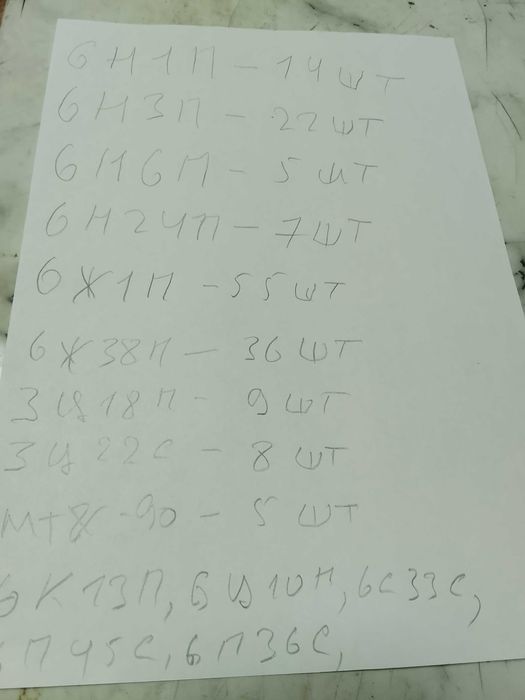 6Н1П - 14 шт
6Н3П - 22 шт
6Н6П - 5 шт
6Н24П - 7 шт
6Ж1П - 55 шт
6Ж38П - 36 шт
3Ц18П - 9 шт
3Ц22С - 8 шт
МТХ-90 - 5 шт
6К13П, 6Ц10П, 6С33С,
6П45С, 6П36С,